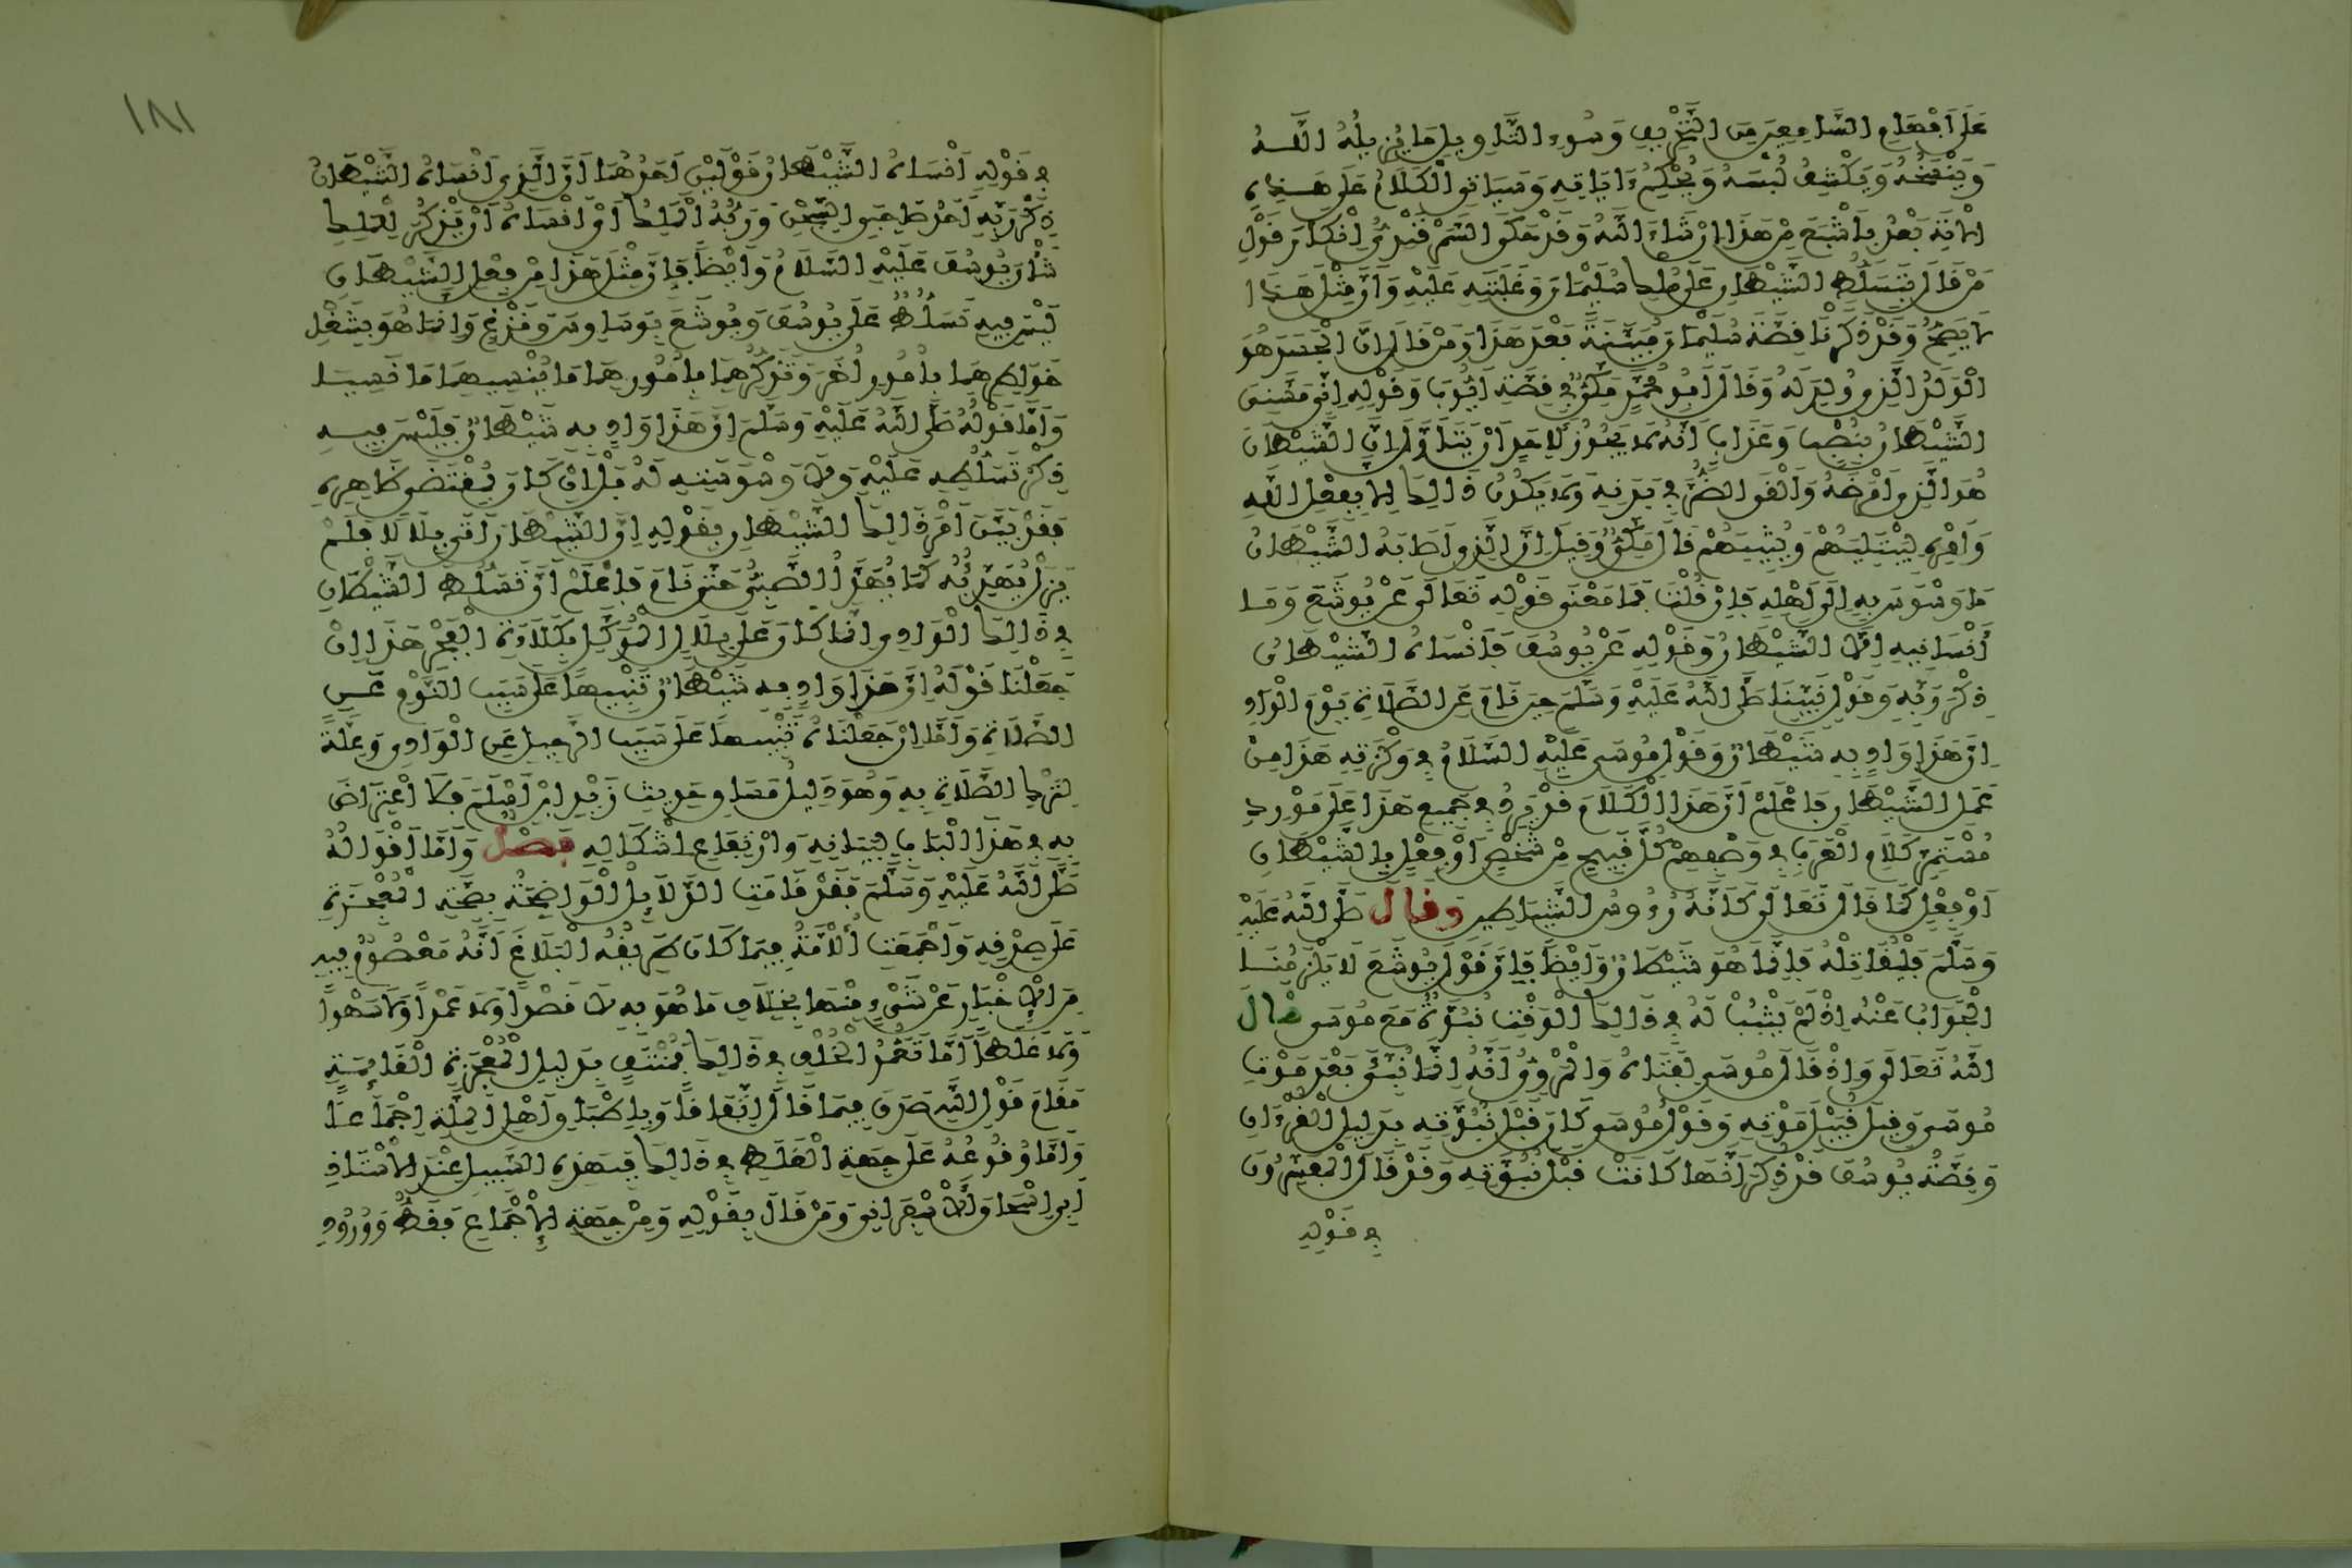 عَلَى أَفْهَامِ السَّامِعِينَ مِنَ التَّحْرِيفِ وَسُوءِ التَّأْوِيلِ مَا يُزِيلُهُ اللَّهُ
وَيَنْسَخُهُ وَيَكْشِفُ لُبْسَهُ وَيُحْكِمُ ءَايَاتِهِ وَسَيَأْتِي الْكَلَامُ عَلَى هَذِهِ
الْآيَةِ بَعْدُ بِأَشْبَعَ مِنْ هَذَا إِنْ شَاءَ اللَّهُ وَقَدْ حَكَى السَّمَرْقَنْدِيُّ إِنْكَارَ قَوْلِ
مَنْ قَالَ بِتَسَلُّطِ الشَّيْطَانِ عَلَى مُلْكِ سُلَيْمَانَ وَغَلَبَتِهِ عَلَيْهِ وَأَنَّ مِثْلَ هَذَا
لَا يَصِحُّ وَقَدْ ذَكَرْنَا قِصَّةَ سُلَيْمَانَ مُبَيَّنَةً بَعْدَ هَذَا وَمَنْ قَالَ إِنَّ الْجَسَدَ هُوَ
الْوَلَدُ الَّذِي وُلِدَ لَهُ وَقَالَ أَبُو مُحَمَّدٍ مَكِّيٌّ فِي قِصَّةِ أَيُّوبَ وَقَوْلِهِ إِنِّي مَسَّنِيَ
الشَّيْطَانُ بِنُصْبٍ وَعَذَابٍ أَنَّهُ لَا يَجُوزُ لِأَحَدٍ أَنْ يَتَأَوَّلَ أَنَّ الشَّيْطَانَ
هُوَ الَّذِي أَمْرَضَهُ وَأَلْقَى الضُّرَّ فِي بَدَنِهِ وَلَا يَكُونُ ذَالِكَ إِلَّا بِفِعْلِ اللَّهِ
وَأَمْرِهِ لِيَبْتَلِيَهُمْ وَيُثِيبَهُمْ قَالَ مَكِّيٌّ وَقِيلَ إِنَّ الَّذِي أَصَابَهُ الشَّيْطَانُ
مَا وَسْوَسَ بِهِ إِلَى أَهْلِهِ فَإِنْ قُلْتَ فَمَا مَعْنَى قَوْلِهِ تَعَالَى عَنْ يُوشَعَ وَمَا
أَنْسَانِيهِ إِلَّا الشَّيْطَانُ وَقَوْلِهِ عَنْ يُوسُفَ فَأَنْسَاهُ الشَّيْطَانُ
ذِكْرَ رَبِّهِ وَقَوْلِ نَبِيِّنَا صَلَّى اللَّهُ عَلَيْهِ وَسَلَّمَ حِينَ نَامَ عَنِ الصَّلَاةِ يَوْمَ الْوَادِ
إِنَّ هَذَا وَادٍ بِهِ شَيْطَانٌ وَقَوْلِ مُوسَى عَلَيْهِ السَّلَامُ فِي وَكْزَتِهِ هَذَا مِنْ
عَمَلِ الشَّيْطَانِ فَاعْلَمْ أَنَّ هَذَا الْكَلَامَ قَدْ يَرِدُ فِي جَمِيعِ هَذَا عَلَى مَوْرِدِ
مُسْتَمِرِّ كَلَامِ الْعَرَبِ فِي وَصْفِهِمْ كُلَّ قَبِيحٍ مِنْ شَخْصٍ أَوْ فِعْلٍ بِالشَّيْطَانِ
أَوْ فِعْلِهِ كَمَا قَالَ تَعَالَى كَأَنَّهُ رُءُوسُ الشَّيَاطِينِ وَقَالَ صَلَّى اللَّهُ عَلَيْهِ
وَسَلَّمَ فَلْيُقَاتِلْهُ فَإِنَّمَا هُوَ شَيْطَانٌ وَأَيْضًا فَإِنَّ قَوْلَ يُوشَعَ لَا يَلْزَمُنَا
الْجَوَابُ عَنْهُ إِذْ لَمْ يَثْبُتْ لَهُ فِي ذَالِكَ الْوَقْتِ نُبُوَّةٌ مَعَ مُوسَى قَالَ
اللَّهُ تَعَالَى وَإِذْ قَالَ مُوسَى لِفَتَاهُ وَالْمَرْوِيُّ أَنَّهُ إِنَّمَا نُبِّئَ بَعْدَ مَوْتِ
مُوسَى وَقِيلَ قُبَيْلَ مَوْتِهِ وَقَوْلُ مُوسَى كَانَ قَبْلَ نُبُوَّتِهِ بِدَلِيلِ الْقُرْءَانِ
وَقِصَّةُ يُوسُفَ قَدْ ذُكِرَ أَنَّهَا كَانَتْ قَبْلَ نُبُوَّتِهِ وَقَدْ قَالَ الْمُفَسِّرُونَ
فِي قَوْلِهِ
١٨١
فِي قَوْلِهِ أَنْسَاهُ الشَّيْطَانُ قَوْلَيْنِ أَحَدُهُمَا أَنَّ الَّذِي أَنْسَاهُ الشَّيْطَانُ
ذِكْرَ رَبِّهِ أَحَدُ صَاحِبَيِ السِّجْنِ وَرَبُّهُ الْمَلِكُ أَيْ أَنْسَاهُ أَنْ يَذْكُرَ لِلْمَلِكِ
شَأْنَ يُوسُفَ عَلَيْهِ السَّلَامُ وَأَيْضًا فَإِنَّ مِثْلَ هَذَا مِنْ فِعْلِ الشَّيْطَانِ
لَيْسَ فِيهِ تَسَلُّطٌ عَلَى يُوسُفَ وَيُوشَعَ بِوَسَاوِسَ وَنَزْغٍ وَإِنَّمَا هُوَ بِشَغْلِ
خَوَاطِرِهِمَا بِأُمُورٍ أُخَرَ وَتَذْكِيرِهِمَا بِأُمُورِهِمَا مَا يُنْسِيهِمَا مَا نَسِيَا
وَأَمَّا قَوْلُهُ صَلَّى اللَّهُ عَلَيْهِ وَسَلَّمَ إِنَّ هَذَا وَادٍ بِهِ شَيْطَانٌ فَلَيْسَ فِيهِ
ذِكْرُ تَسَلُّطِهِ عَلَيْهِ وَلَا وَسْوَسَتِهِ لَهُ بَلْ إِنْ كَانَ بِمُقْتَضَى ظَاهِرِهِ
فَقَدْ بَيَّنَ أَمْرَ ذَالِكَ الشَّيْطَانِ بِقَوْلِهِ إِنَّ الشَّيْطَانَ أَتَى بِلَالًا فَلَمْ
يَزَلْ يُهَدِّئُهُ كَمَا يُهَدَّأُ الصَّبِيُّ حَتَّى نَامَ فَاعْلَمْ أَنَّ تَسَلُّطَ الشَّيْطَانِ
فِي ذَالِكَ الْوَادِي إِنَّمَا كَانَ عَلَى بِلَالٍ الْمُوَكَّلِ بِكَلَاءَةِ الْفَجْرِ هَذَا إِنْ
جَعَلْنَا قَوْلَهُ إِنَّ هَذَا وَادٍ بِهِ شَيْطَانٌ تَنْبِيهًا عَلَى سَبَبِ النَّوْمِ عَنِ
الصَّلَاةِ وَأَمَّا إِنْ جَعَلْنَاهُ تَنْبِيهًا عَلَى سَبَبِ الرَّحِيلِ عَنِ الْوَادِي وَعِلَّةً
لِتَرْكِ الصَّلَاةِ بِهِ وَهُوَ دَلِيلُ مَسَاوِ حَدِيثِ زَيْدِ ابْنِ أَسْلَمَ فَلَا اعْتِرَاضَ
بِهِ فِي هَذَا الْبَابِ لِبَيَانِهِ وَارْتِفَاعِ إِشْكَالِهِ فَصْلٌ وَأَمَّا أَقْوَالُهُ
صَلَّى اللَّهُ عَلَيْهِ وَسَلَّمَ فَقَدْ قَامَتِ الدَّلَائِلُ الْوَاضِحَةُ بِصِحَّةِ الْمُعْجِزَةِ
عَلَى صِدْقِهِ وَأَجْمَعَتِ الْأُمَّةُ فِيمَا كَانَ طَرِيقُهُ الْبَلَاغَ أَنَّهُ مَعْصُومٌ فِيهِ
مِنَ الْإِخْبَارِ عَنْ شَيْءٍ مِنْهَا بِخِلَافِ مَا هُوَ بِهِ لَا قَصْدًا وَلَا عَمْدًا وَلَا سَهْوًا
وَلَا غَلَطًا أَمَّا تَعَمُّدُ الْخُلْفِ فِي ذَالِكَ فَمُنْتَفٍ بِدَلِيلِ الْمُعْجِزَةِ الْقَائِمَةِ
مَقَامَ قَوْلِ اللَّهِ صَدَقَ فِيمَا قَالَ اتِّفَاقًا وَبِإِطْبَاقِ أَهْلِ الْمِلَّةِ إِجْمَاعًا
وَأَمَّا وُقُوعُهُ عَلَى جِهَةِ الْغَلَطِ فِي ذَالِكَ فَبِهَذِهِ السَّبِيلِ عِنْدَ الْأُسْتَاذِ
أَبِي إِسْحَاقَ الْإِسْفَرَائِنِي وَمَنْ قَالَ بِقَوْلِهِ وَمِنْ جِهَةِ الْإِجْمَاعِ فَقَطْ وَوُرُودِ